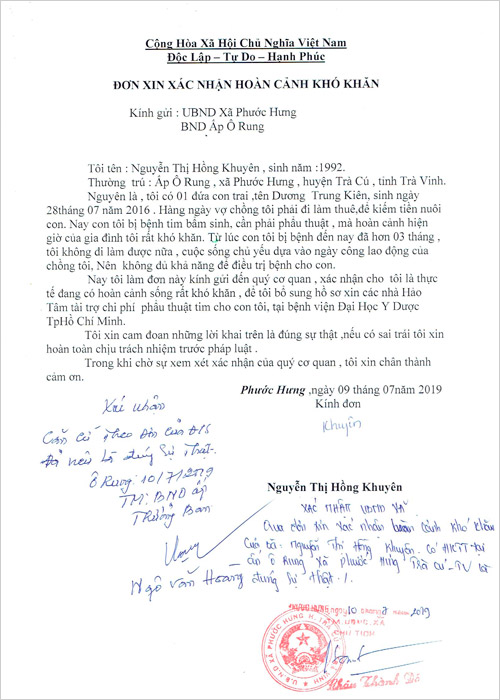 Cộng Hòa Xã Hội Chủ Nghĩa Việt Nam
Độc Lập – Tự Do – Hạnh Phúc
ĐƠN XIN XÁC NHẬN HOÀN CẢNH KHÓ KHĂN
Kính gửi : UBND Xã Phước Hưng
BND Ấp Ô Rung
Tôi tên : Nguyễn Thị Hồng Khuyên , sinh năm :1992.
Thường trú : Ấp Ô Rung , xã Phước Hưng , huyện Trà Cú , tỉnh Trà Vinh.
Nguyên là , tôi có 01 đứa con trai ,tên Dương Trung Kiên, sinh ngày
28tháng 07 năm 2016 . Hàng ngày vợ chồng tôi phải đi làm thuê,để kiếm tiền nuôi
con. Nay con tôi bị bệnh tim bẩm sinh, cần phải phẩu thuật , mà hoàn cảnh hiện
giờ của gia đình tôi rất khó khăn. Từ lúc con tôi bị bệnh đến nay đã hơn 03 tháng ,
tôi không đi làm được nữa , cuộc sống chủ yếu dựa vào ngày công lao động của
chồng tôi, Nên không đủ khả năng để điều trị bệnh cho con.
Nay tôi làm đơn này kính gửi đến quý cơ quan , xác nhận cho tôi là thực
tế đang có hoàn cảnh sống rất khó khăn , để tôi bổ sung hồ sơ xin các nhà Hảo
Tâm tài trợ chi phí phẩu thuật tim cho con tôi, tại bệnh viện Đại Học Y Dược
TpHồ Chí Minh.
Tôi xin cam đoan những lời khai trên là đúng sự thật ,nếu có sai trái tôi xin
hoàn toàn chịu trách nhiệm trước pháp luật .
Trong khi chờ sự xem xét xác nhận của quý cơ quan , tôi xin chân thành
cảm ơn.
Phước Hưng ,ngày 09 tháng 07năm 2019
Kính đơn
Khuyên
Nguyễn Thị Hồng Khuyên
Xác nhận
Căn cứ theo đơn của
Đã nêu là đúng sự thật.
Ô Rung: 10/7/2019
TM: BND ấp
Trưởng Ban
Ngô Văn Hoang
XÁC NHẬN UBND XÃ
Qua đơn xin xác nhận hoàn cảnh khó khăn
Của bà: Nguyễn Thị Hồng Khuyên. Có HKTT
ấp Ô Rung xã Phước Hưng Trà Cú – TV là
đúng sự thật ./.
ngày 10 tháng năm 2019
TM. UBND. XÃ
CHỦ TỊCH